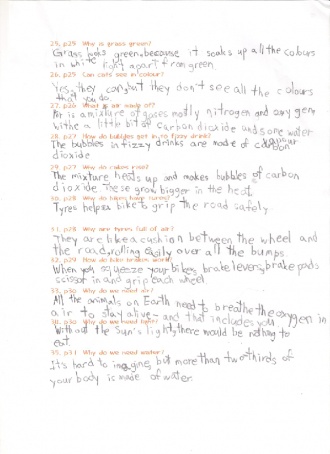 25, p25 Why is grass green?
Grass looks green, because it soaks up all the colours
in white light apart from green
26, p25 Can cats see in colour?
Yes, they can, but they don't see all the colours
that you do.
27, p26 What is air made of?
Air is a mixture of gases mostly nitrogen and oxygen
withe a little bit of carbon dioxide and some water
vapour
28, p27 How do bubbles get into fizzy drink?
The bubbles in fizzy drinks are made of carbon
dioxide
29, p27 Why do cakes rise?
The mixture heats up and makes bubbles of carbon
dioxide. These grow bigger in the heat.
30, p28 Why do bikes have tyres?
Tyres helps a bike to grip the road safely.
31, p28 Why are tyres full of air?
They are like a cushion between the wheel and
the road, rolling easily over all the bumps
32, p29 How do bike brakes work?
When you squeeze your bikes, brake levers, brake pads
scissor in and grip each wheel
33, p30 Why do we need air?
All the animals on Earth need to breathe the oxygen in
air to stay alive- and that includes you
34, p30 Why do we need light?
Without the Sun's light, there would be nothing to
eat.
35, p31 Why do we need water?
It's hard to imagine, but more than two thirds of
your body is made of water.